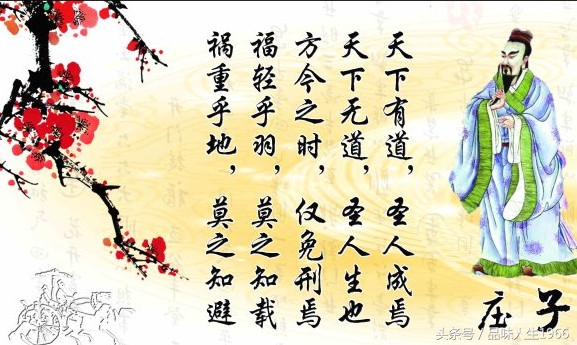 天下有道，圣人成焉
天下无道，圣人生也
方今之时，仅免刑焉
福轻乎羽，莫之知载
祸重乎地，莫之知避
庄子
头条号／品味人生1966